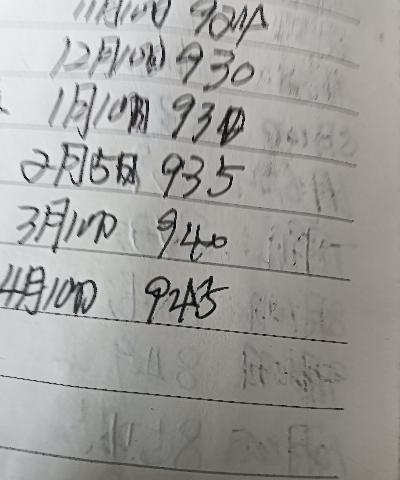 11月10日
12月10日 930
1月10日 930
2月15日 935
3月10日 940
4月10日 945